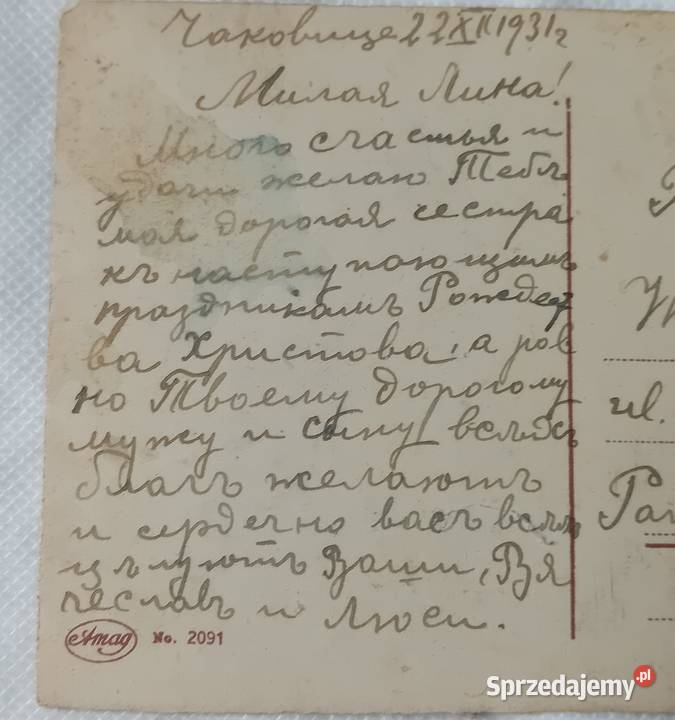 Чаковице 22 XII 1931 г
Милая Лина!
Много счастья и
удачи желаю Тебѣ
моя дорогая сестра
къ наступающимъ
праздникамъ Рождест
ва Христова, а ров
но Твоему дорогому
мужу и сыну всѣхъ
благъ желаютъ
и сердечно васъ всѣхъ
цѣлуютъ Ваши, Вя
чеславъ и Люси.
ul.
Amag No. 2091
Sprzedajemy.pl